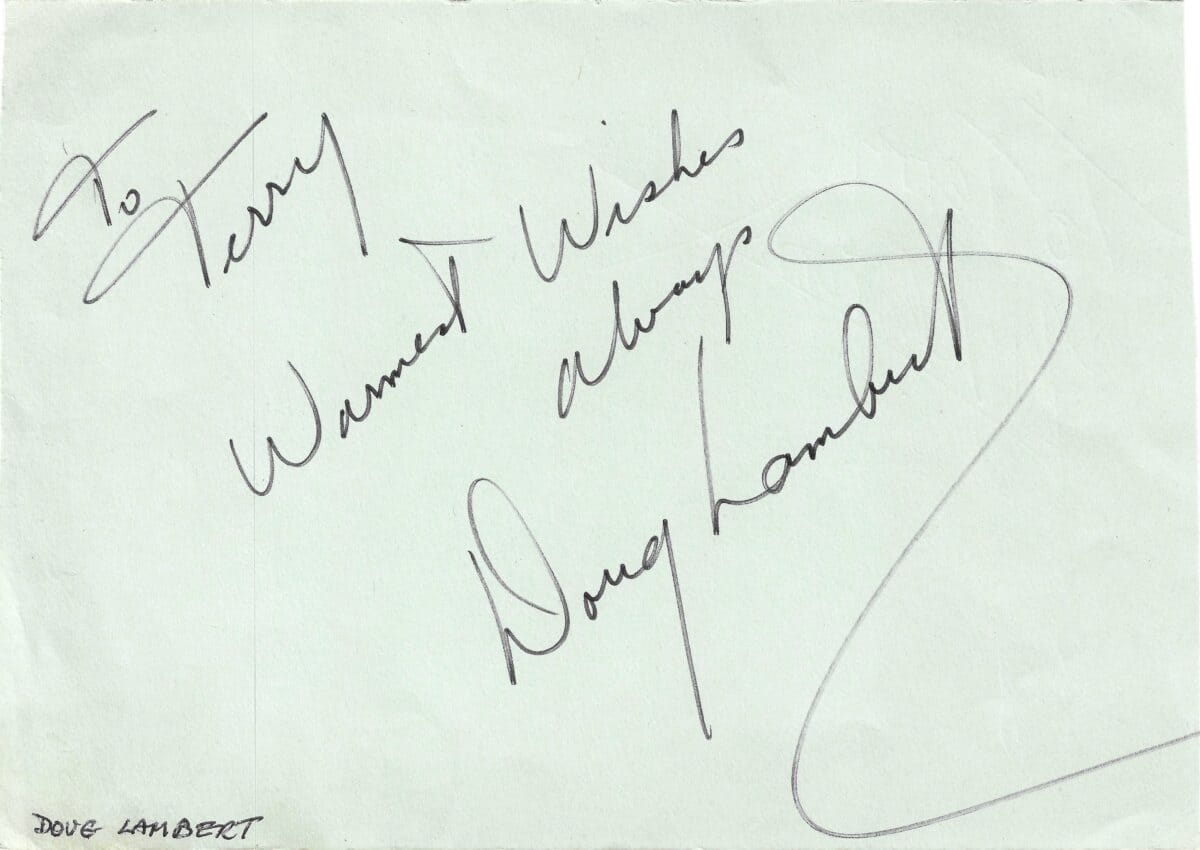 To
Terry
Warmest Wishes
always
Doug Lambert
DOUG LAMBERT